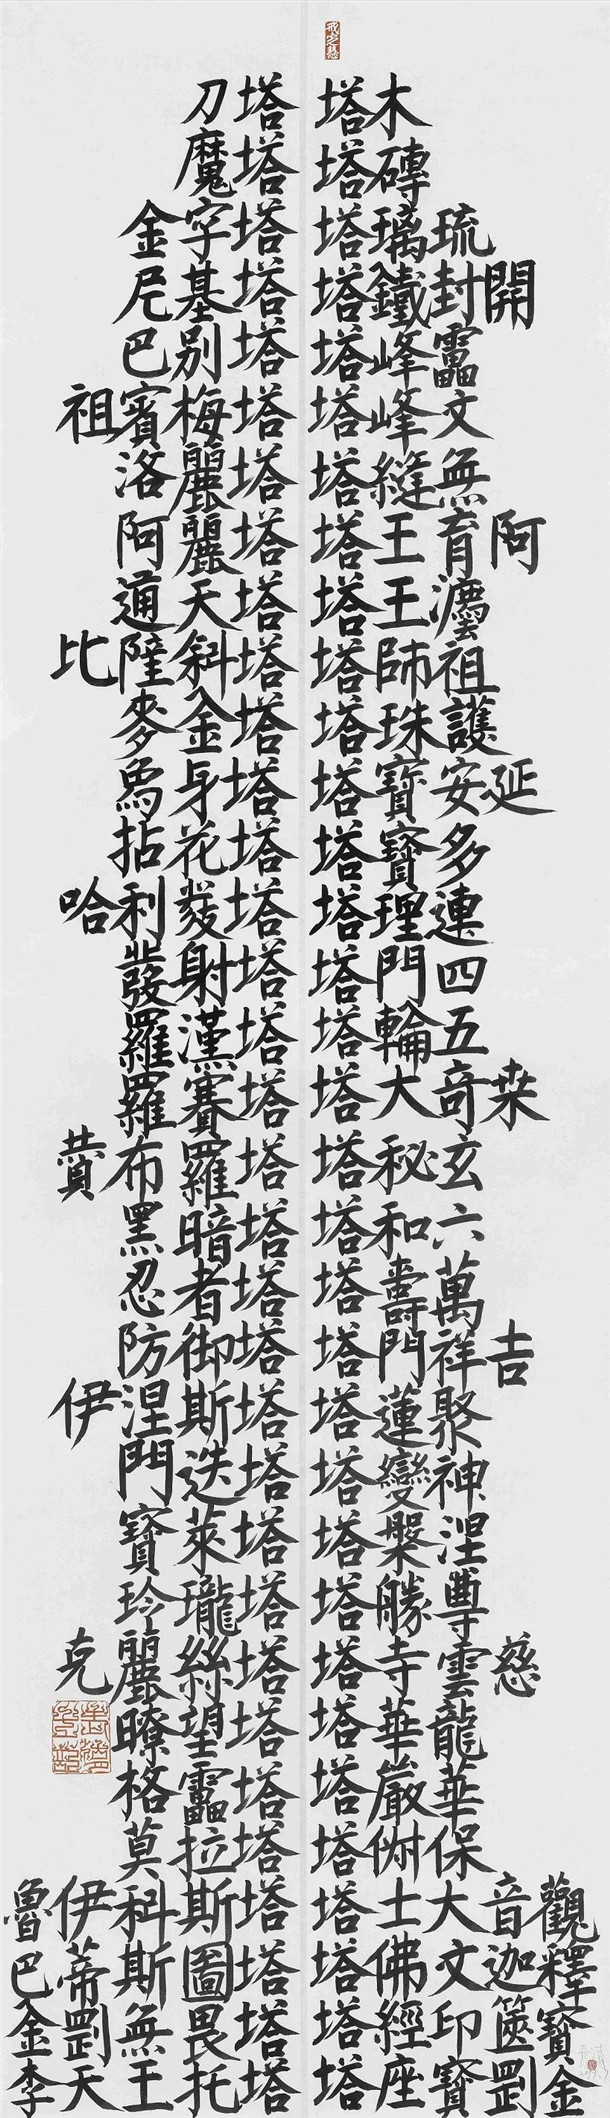 木塔
磚塔
琉璃塔
開封鐵塔
靁峰塔
文峰塔
無縫塔
阿育王塔
灋王塔
祖師塔
護珠塔
延安寶塔
多寶塔
連理塔
四門塔
五輪塔
桒奇大塔
玄秘塔
六和塔
萬壽塔
吉祥門塔
聚蓮塔
神變塔
涅槃塔
尊勝塔
慈雲寺塔
龍華塔
華嚴塔
保俶塔
觀音大士塔
釋迦文佛塔
寶篋印經塔
金剛寶座塔
刀塔
魔塔
金字塔
尼基塔
巴別塔
祖賓梅塔
洛麗塔
阿麗塔
通天塔
比薩斜塔
麥金塔
身塔
拈花塔
哈利發塔
發射塔
羅漢塔
羅賽塔
布羅塔
黑暗塔
忍者塔
防御塔
伊涅斯塔
門迭塔
寶萊塔
玲瓏塔
克麗絲塔
瞭望塔
格靁塔
莫拉塔
魯伊科斯塔
巴蒂斯圖塔
金剛無畏塔
李天王托塔